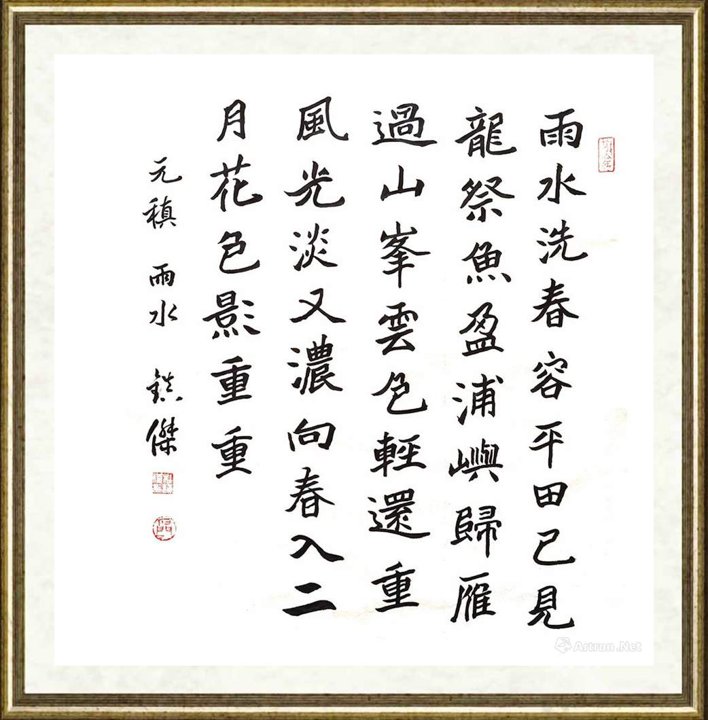 雨水洗春容平田已見
龍祭魚盈浦嶼歸雁
過山峯雲色輕還重
風光淡又濃向春入二
月花色影重重
元稹 雨水 鎮傑
Artron.Net